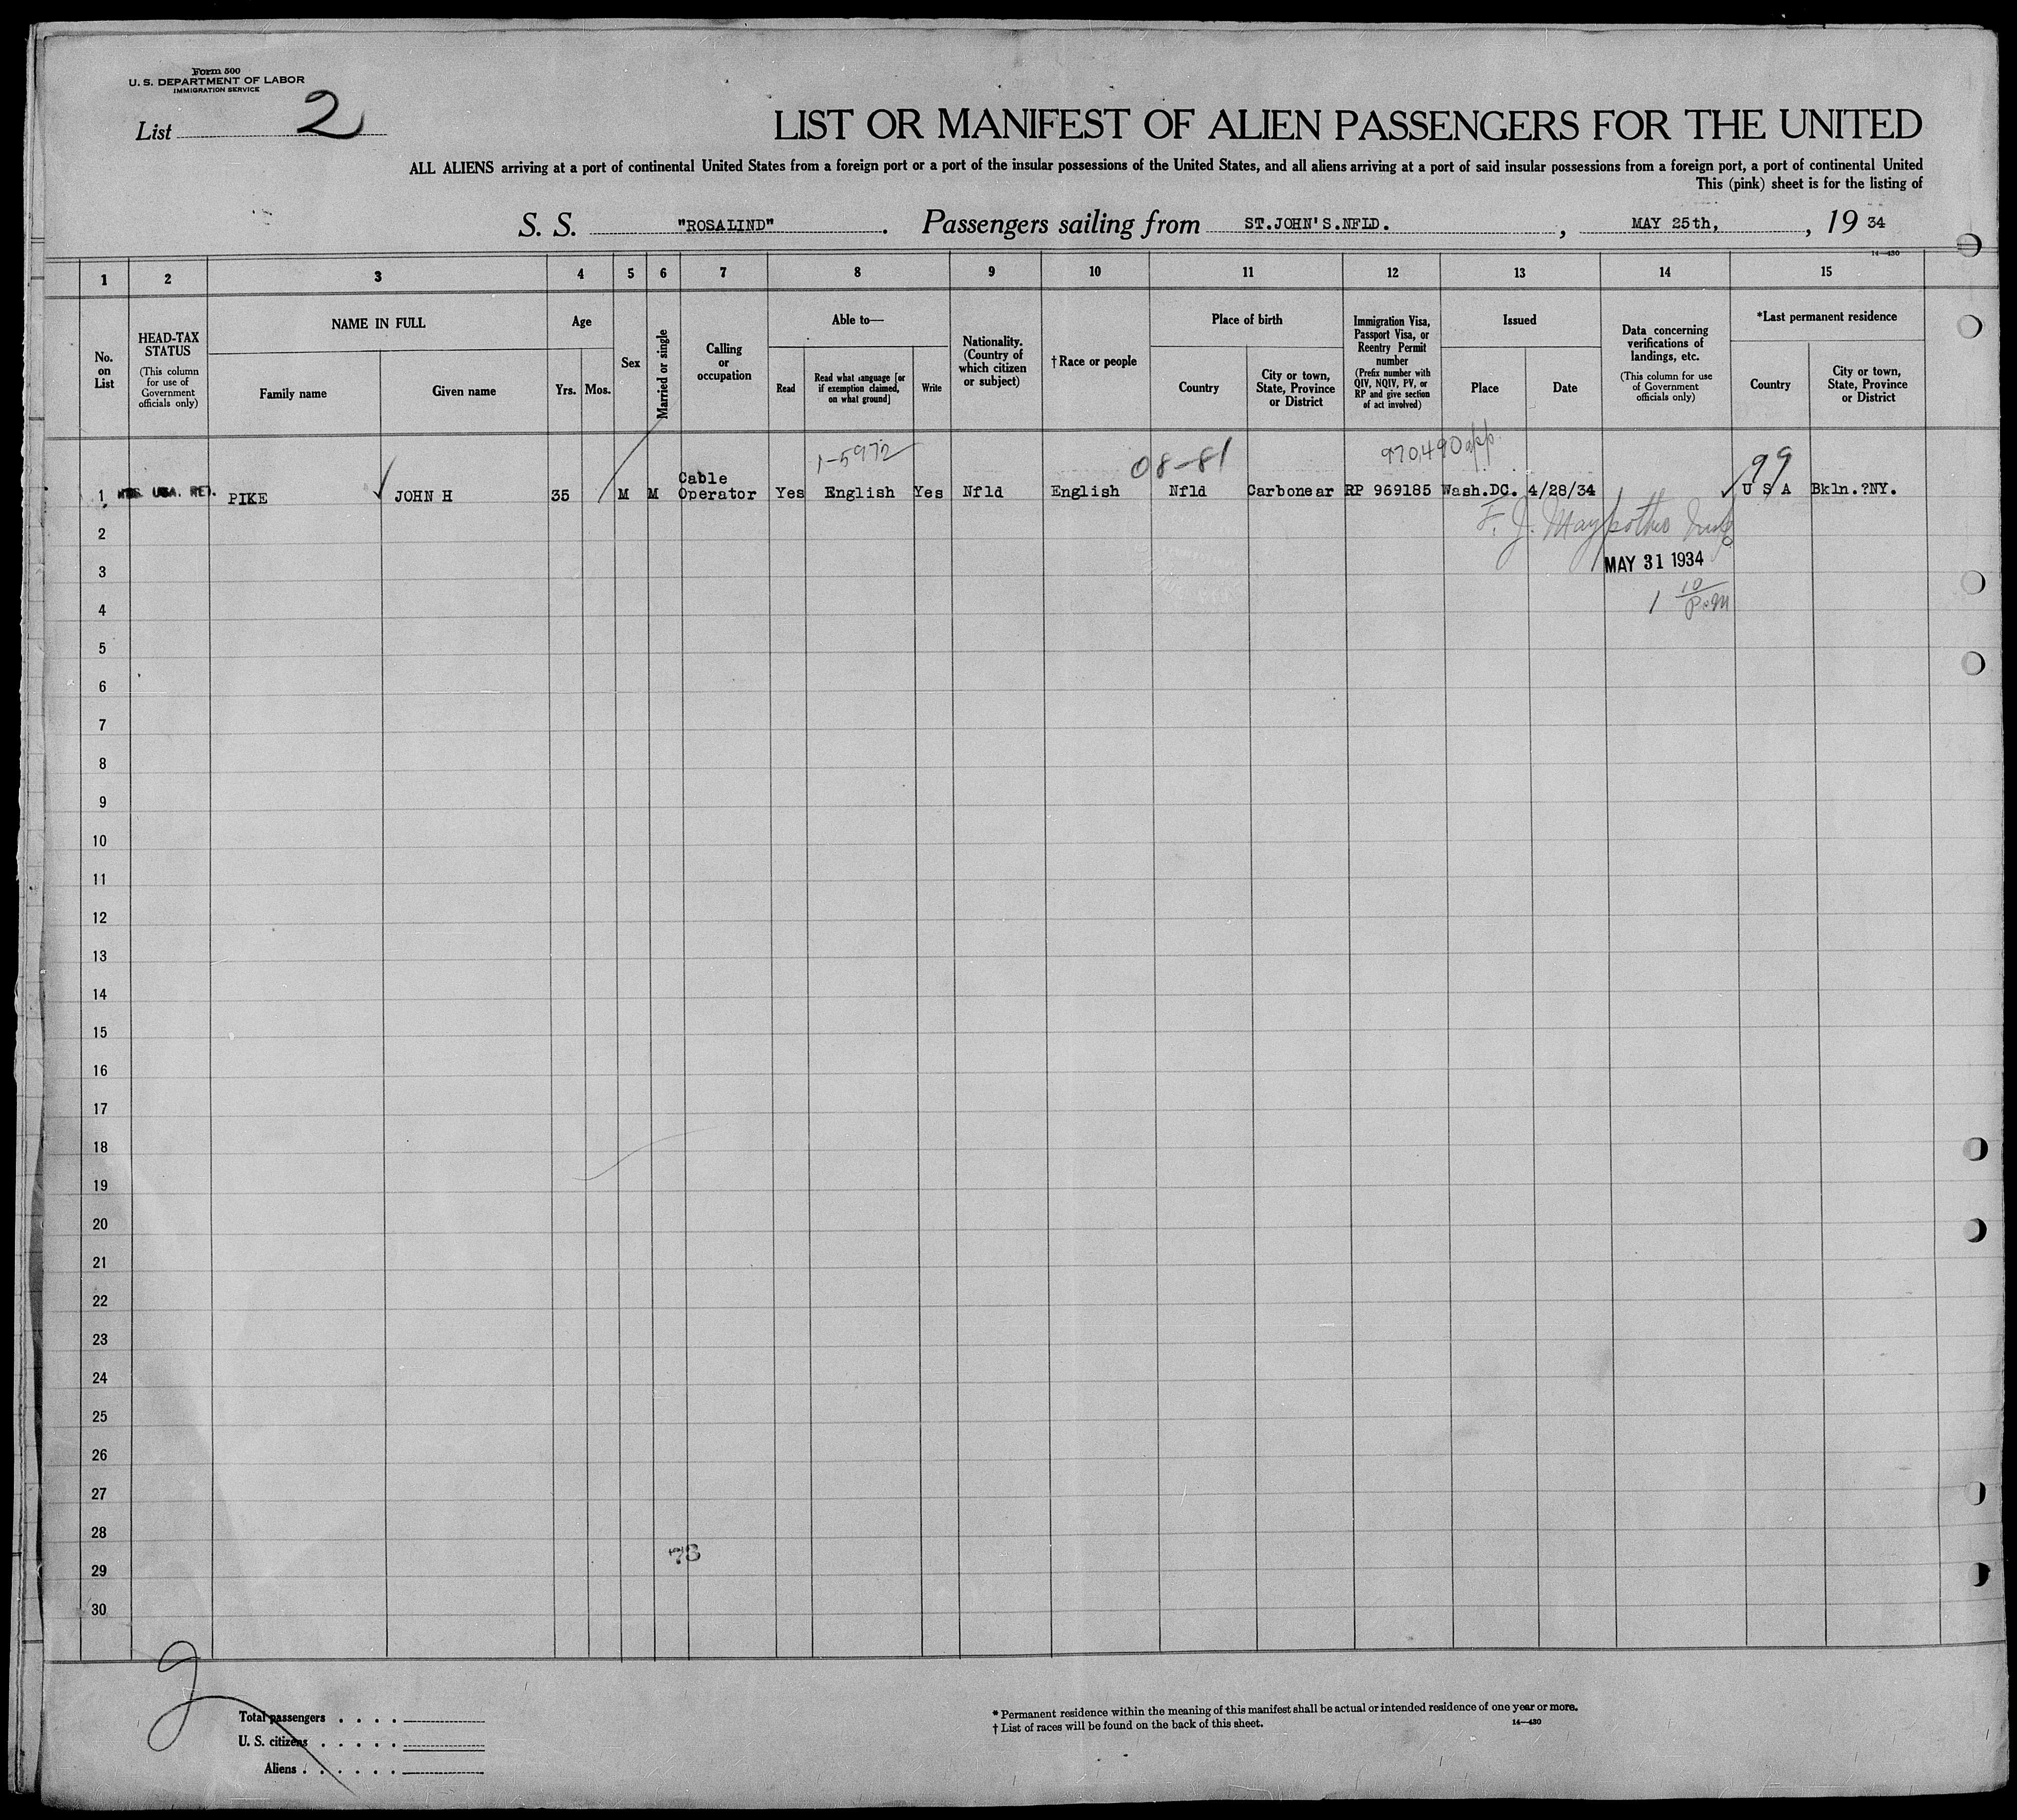 Form 500
U. S. DEPARTMENT OF LABOR
IMMIGRATION SERVICE
List 2
LIST OR MANIFEST OF ALIEN PASSENGERS FOR THE UNITED
ALL ALIENS arriving at a port of continental United States from a foreign port or a port of the insular possessions of the United States, and all aliens arriving at a port of said insular possessions from a foreign port, a port of continental United
This (pink) sheet is for the listing of
S. S. "ROSALIND". Passengers sailing from ST.JOHN'S.NFLD. , MAY 25th, , 19 34
14—430
1 2 3 4 5 6 7 8 9 10 11 12 13 14 15
No. on List
HEAD-TAX STATUS (This column for use of Government officials only)
NAME IN FULL
Family name
Given name
Age
Yrs. Mos.
Sex
Married or single
Calling or occupation
Able to—
Read
Read what language [or if exemption claimed, on what ground]
Write
Nationality. (Country of which citizen or subject)
† Race or people
Place of birth
Country
City or town, State, Province or District
Immigration Visa, Passport Visa, or Reentry Permit number (Prefix number with QIV, NQIV, PV, or RP and give section of act involved)
Issued
Place
Date
Data concerning verifications of landings, etc. (This column for use of Government officials only)
*Last permanent residence
Country
City or town, State, Province or District
1-5972 08-81 970490 app. 99
1 USA. PIKE JOHN H 35 M M Cable Operator Yes English Yes Nfld English Nfld Carbonear RP 969185 Wash.DC. 4/28/34 U S A Bkln.?NY.
2
F. J.
3
MAY 31 1934
4
1 10 P.M
5
6
7
8
9
10
11
12
13
14
15
16
17
18
19
20
21
22
23
24
25
26
27
28
78
29
30
Total passengers . . . .
U. S. citizens . . . . .
Aliens . . . . . .
* Permanent residence within the meaning of this manifest shall be actual or intended residence of one year or more.
† List of races will be found on the back of this sheet.
14—430